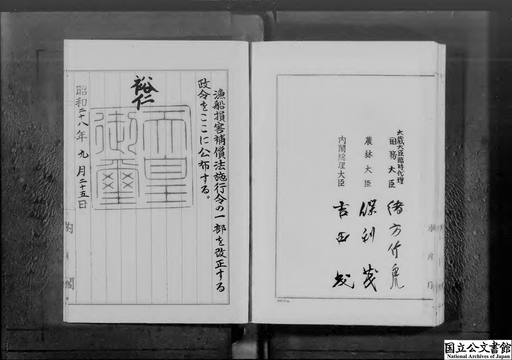 漁船損害補償法施行令の一部を改正する
政令をここに公布する。
裕仁
天皇
御璽
昭和二十八年九月二十五日
内閣
大蔵大臣臨時代理
国務大臣 緒方竹虎
農林大臣 保利茂
内閣総理大臣 吉田茂
国立公文書館
National Archives of Japan